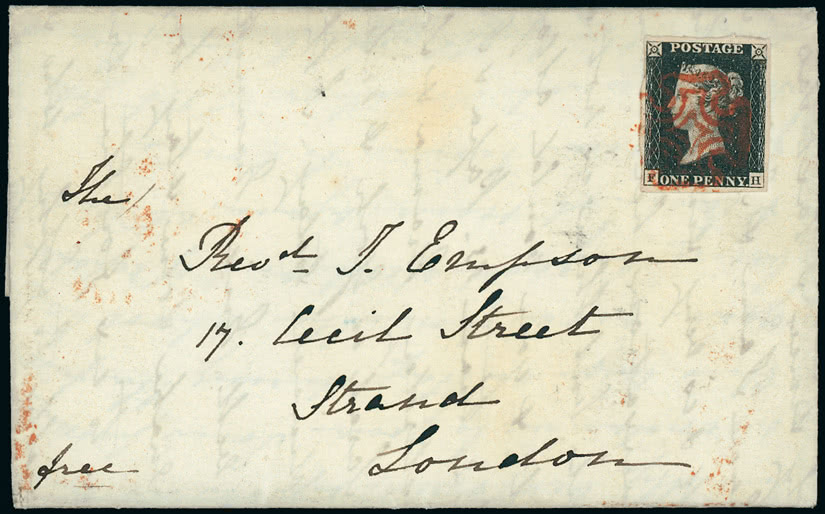 POSTAGE
F ONE PENNY. H
The
Revd. T. Empson
17. Cecil Street
Strand
London
free